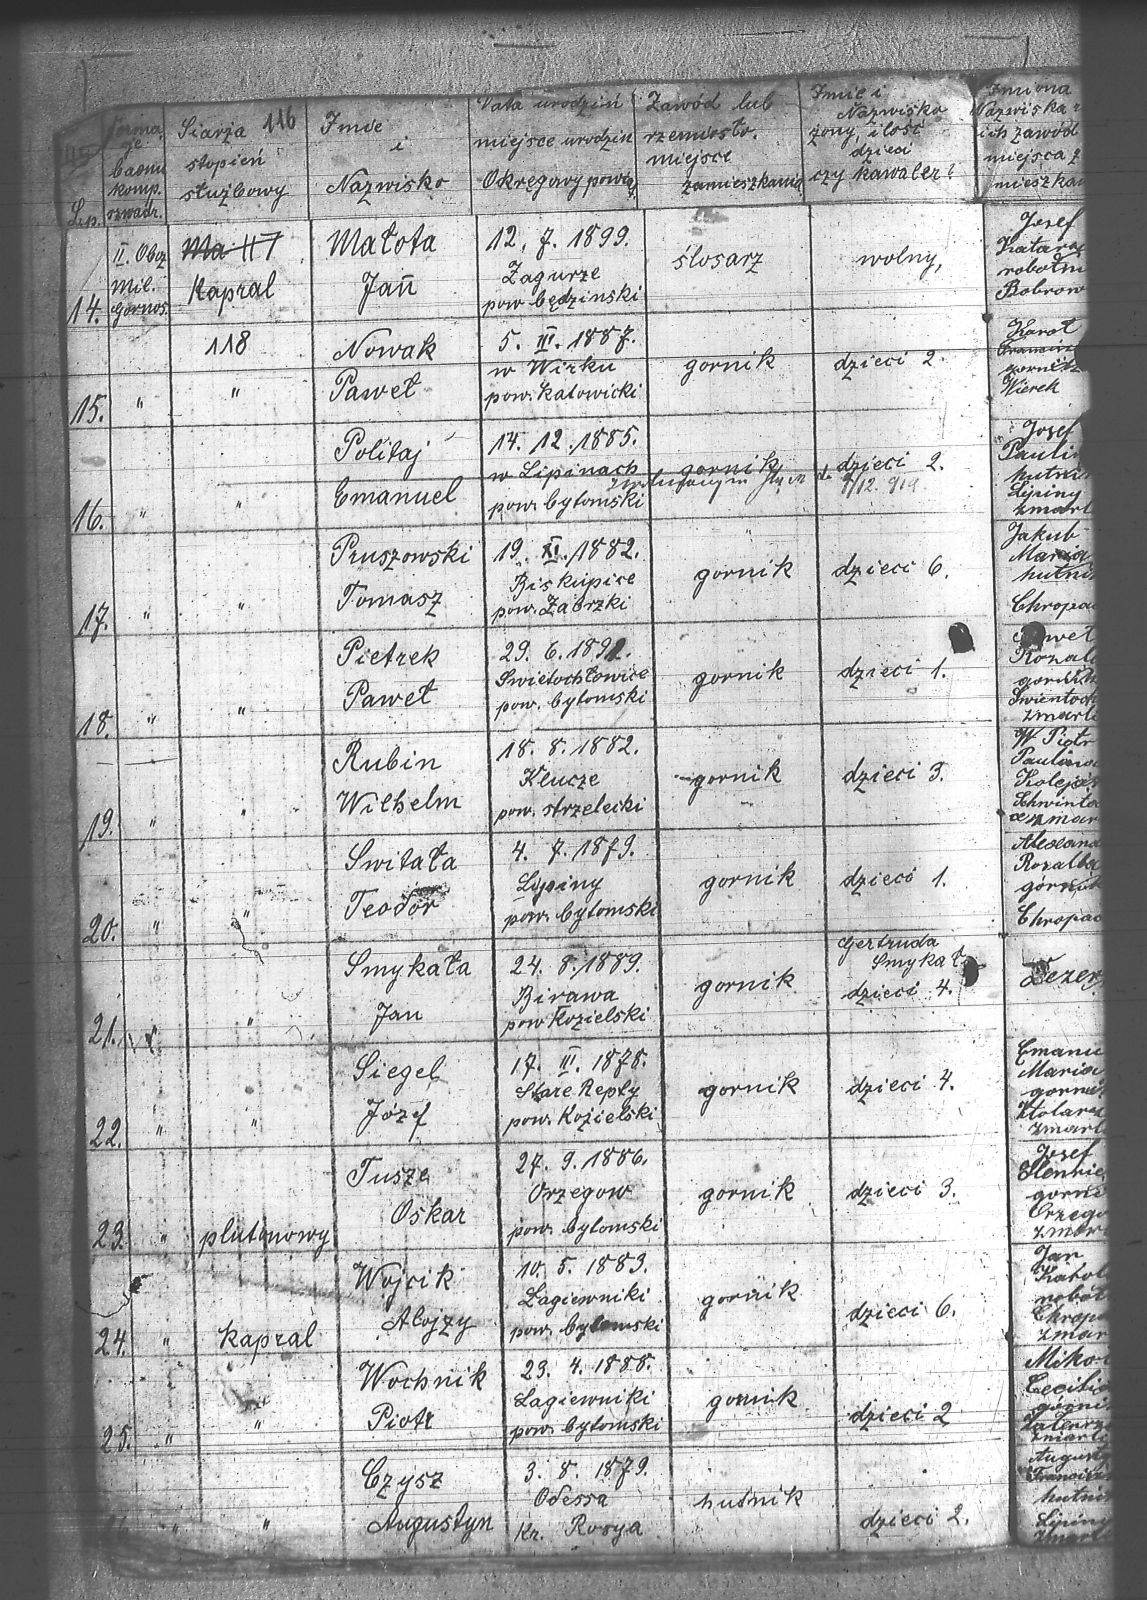 Forma
batni
komp.
szwadr.
L.p.
Siarża 116
stopień
służbowy
Imie
i
Nazwisko
Data urodzin
miejsce urodzin
Okręgowy powia
Zawód lub
rzemiosło.
miejsce
zamieszkania
Imie i
Nazwisko
żony, ilość
dzieci
czy kawaler?
Imiona
Nazwiska
ich zawód
miejsca z
mieszkan
14.
II. Oboz
Mil.
Gornos.
Ma 117
Kapral
Małota
Jan
12. 7. 1899.
Zagurze
pow. będzinski
ślosarz
wolny,
Josef
Katar
robotni
Bobrow
15.
"
118
"
Nowak
Paweł
5. III. 1887.
w Wirku
pow. Katowicki
gornik
dzieci 2.
Karol
Francisz
gornik
Wirek
16.
"
"
Politaj
Emanuel
14. 12. 1885.
w Lipinach
pow. bytomski
gornik
dzieci 2.
1/12. 919.
Josef
Paulin
hutni
Lipiny
zmarl
17.
"
"
Pruszowski
Tomasz
19. XI. 1882.
Biskupice
pow. Zabrzki
gornik
dzieci 6.
Jakub
Marja
hutni
Chropac
18.
"
"
Pietrek
Paweł
29. 6. 189
Swietochłowice
pow. bytomski
gornik
dzieci 1.
Paweł
Rozal
gornik
Swientoch
zmarl
19.
"
"
Rubin
Wilhelm
18. 8. 1882.
Klucze
pow. strzelecki
gornik
dzieci 3.
W Piotr
Paulina
Kolejar
Schwinto
zmar
20.
"
"
Switała
Teodor
4. 7. 1879.
Lipiny
pow. bytomski
gornik
dzieci 1.
Alexand
Rozalba
gornik
Chropac
21.
"
Smykała
Jan
24. 8. 1889.
Birawa
pow. Kozielski
gornik
Gertruda
Smykał.
dzieci 4.
22.
"
"
Siegel
Józef
17. III. 1878.
Stare Repty
pow. Kozielski
gornik
dzieci 4.
Emanu
Maria
gornik
zmarl
23.
"
plutonowy
Tusze
Oskar
27. 9. 1886.
Orzegow
pow. bytomski
gornik
dzieci 3.
Josef
Henrie
gorni
Orzego
zmar
24.
"
kapral
Wojcik
Alojzy
10. 5. 1883.
Łagiewniki
pow. bytomski
gornik
dzieci 6.
Jan
Karol
robot
Chropa
zmar
25.
"
"
Wochnik
Piotr
23. 4. 1888.
Łagiewniki
pow. bytomski
gornik
dzieci 2
Miko
Cecilia
górni
zmarl
"
"
Czysz
Augustyn
3. 8. 1879.
Odessa
Kr. Rosya
hutnik
dzieci 2.
August
Francisz
hutni
Lipiny
zmarl